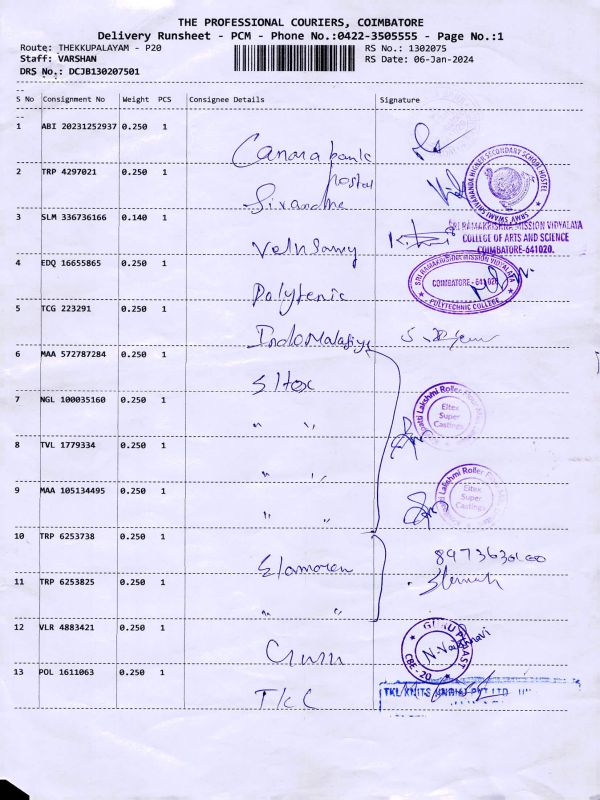 THE PROFESSIONAL COURIERS, COIMBATORE
Delivery Runsheet - PCM - Phone No.:0422-3505555 - Page No.:1
Route: THEKKUPALAYAM - P20 RS No.: 1302075
Staff: VARSHAN RS Date: 06-Jan-2024
DRS No.: DCJB130207501
S No Consignment No Weight PCS Consignee Details Signature
1 ABI 20231252937 0.250 1
Canara bank
2 TRP 4297021 0.250 1
hostel
SRMV SWAMI SHIVANANDA HIGHER SECONDARY SCHOOL HOSTEL
3 SLM 336736166 0.140 1
SRI RAMAKRISHNA MISSION VIDYALAYA
COLLEGE OF ARTS AND SCIENCE
COIMBATORE-641020.
4 EDQ 16655865 0.250 1
Polytenic
SRI RAMAKRISHNA MISSION VIDYALAYA
COIMBATORE - 641020
POLYTECHNIC COLLEGE
5 TCG 223291 0.250 1
6 MAA 572787284 0.250 1
7 NGL 100035160 0.250 1
" "
Lakshmi Roller Flour
Eltex
Super
Castings
8 TVL 1779334 0.250 1
" "
9 MAA 105134495 0.250 1
" "
Lakshmi Roller
Eltex
Super
Castings
10 TRP 6253738 0.250 1
11 TRP 6253825 0.250 1
" "
12 VLR 4883421 0.250 1
GURU PLAST
N. Vaishnavi
CBE-20
13 POL 1611063 0.250 1
TKC
TKL KNITS (INDIA) PVT LTD